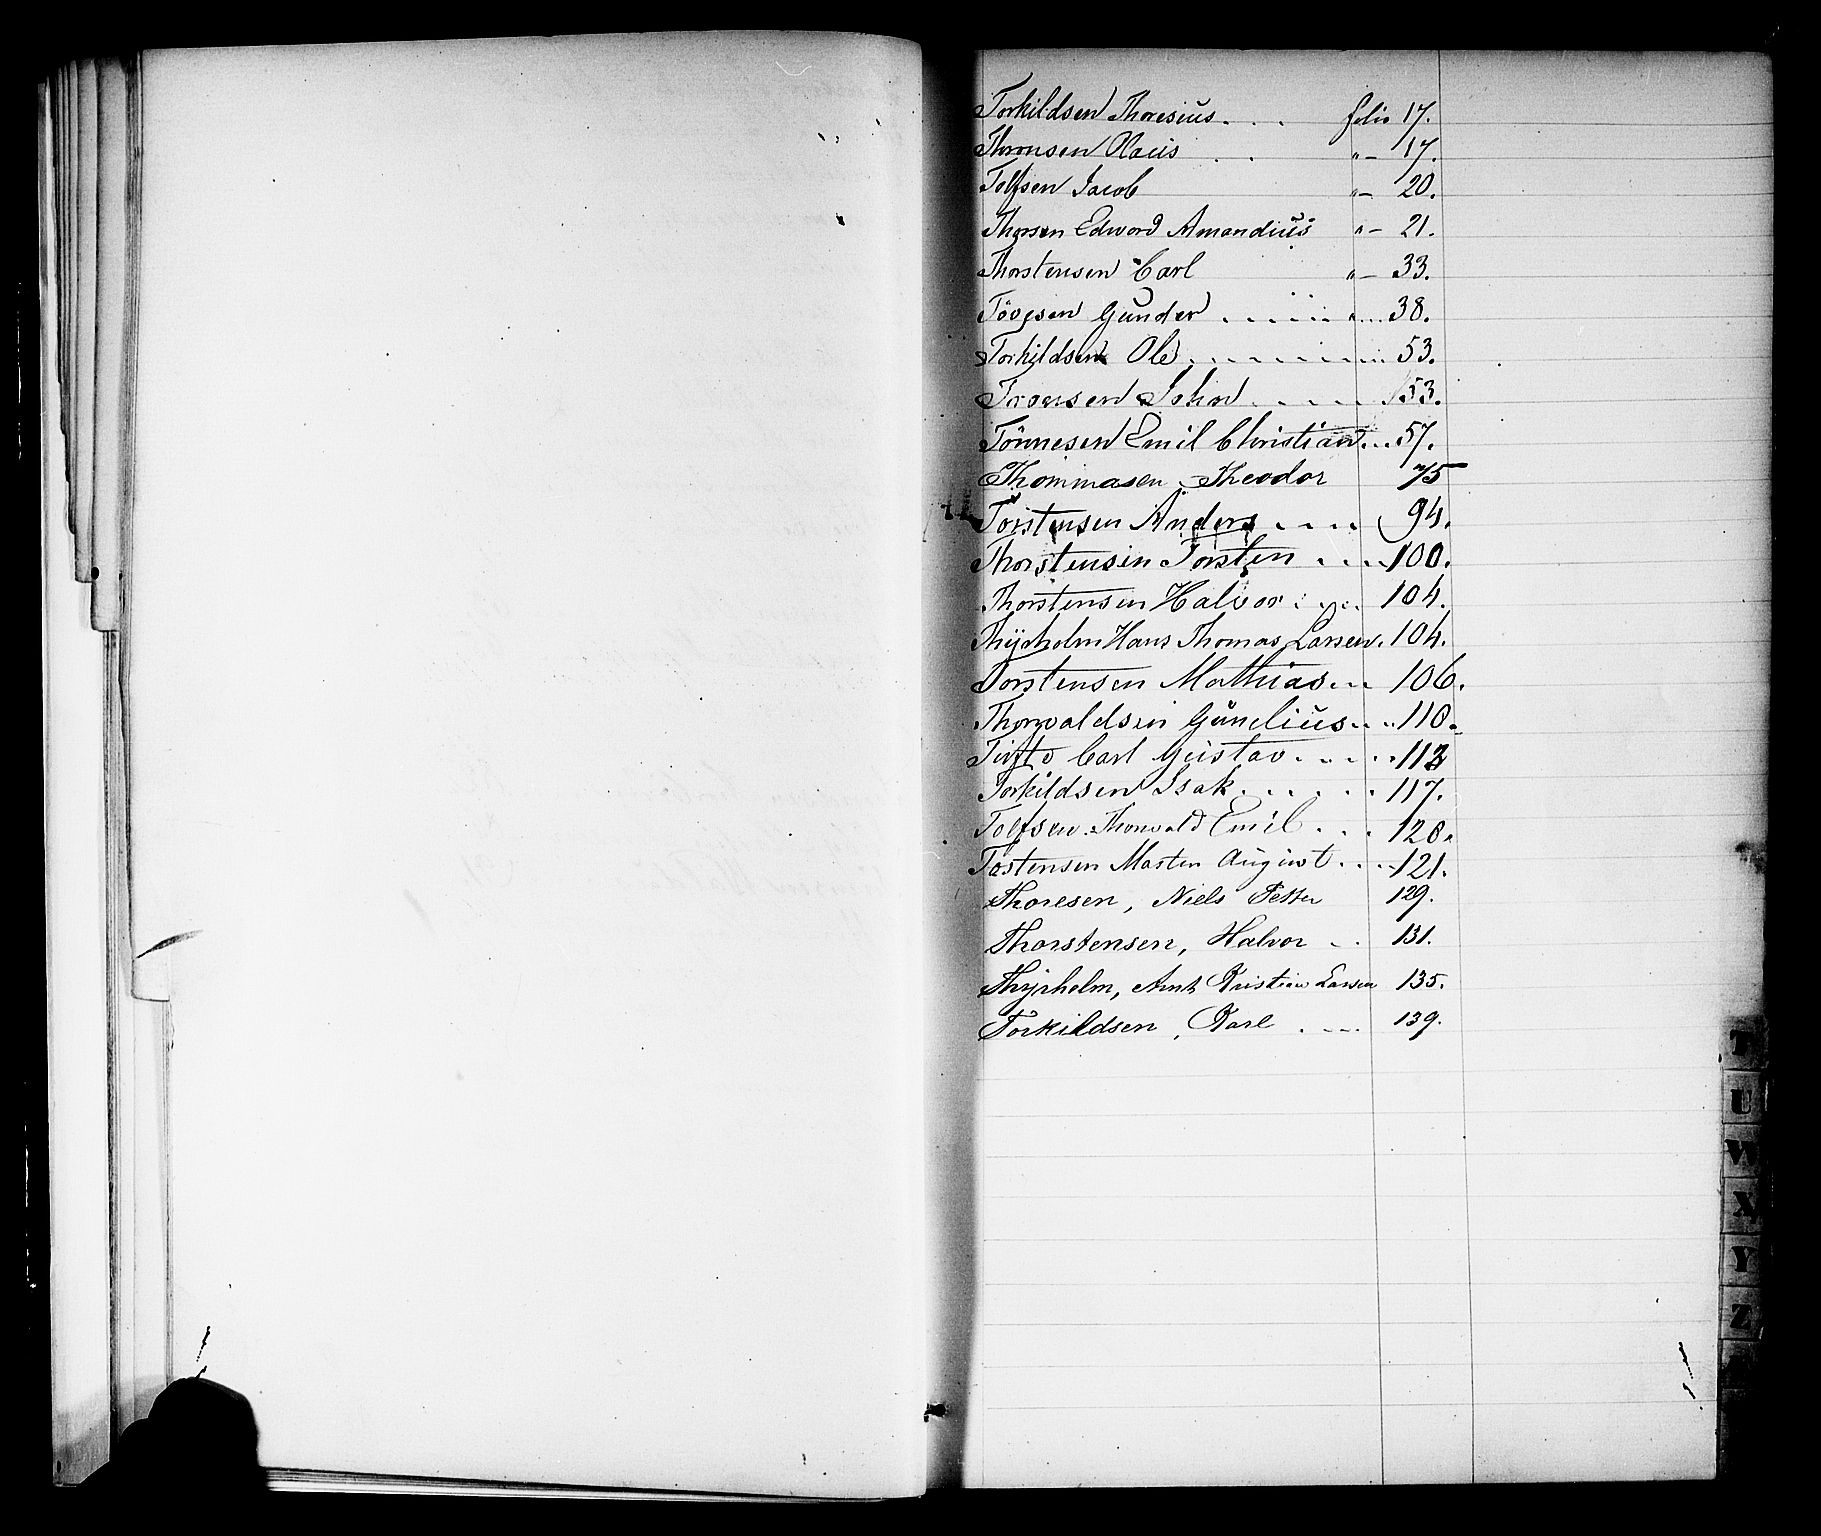 Torkildsen Thoresius. . . folio 17.
Thronsen Olaus . . "— 17.
Tolfsen Jacob "— 20.
Thorsen Edword Amandius "— 21.
Thorstensen Carl "— 33.
Gunder . . . . . . " .... 38.
Torkildsen Ole . . . . . . . . 53.
John . . . . . 53.
Tönnesen Emil Christian... 57.
Thommasen, Theodor 75
Torstensen Anders . . . . 94.
Thorstensen Torsten . . . . 100.
Thorstensen Halvor . . . . 104.
Thyrholm Hans Thomas Larsen. 104.
Torstensen Mathias . . . 106.
Thorvaldsen Gunelius . . . . 110.
Carl Gustav . . . . . 112
Torkildsen Isak . . . . . . 117.
Tolfsen Thorvald Emil . . . 120.
Tostensen Marten August . . . . 121.
Thoresen, Niels Petter 129.
Thorstensen, Halvor . . 131.
Thyrholm, Arnt Kristian Larsen 135.
Torkildsen, Karl . . . . 139.
T
U
W
X
Y
Z